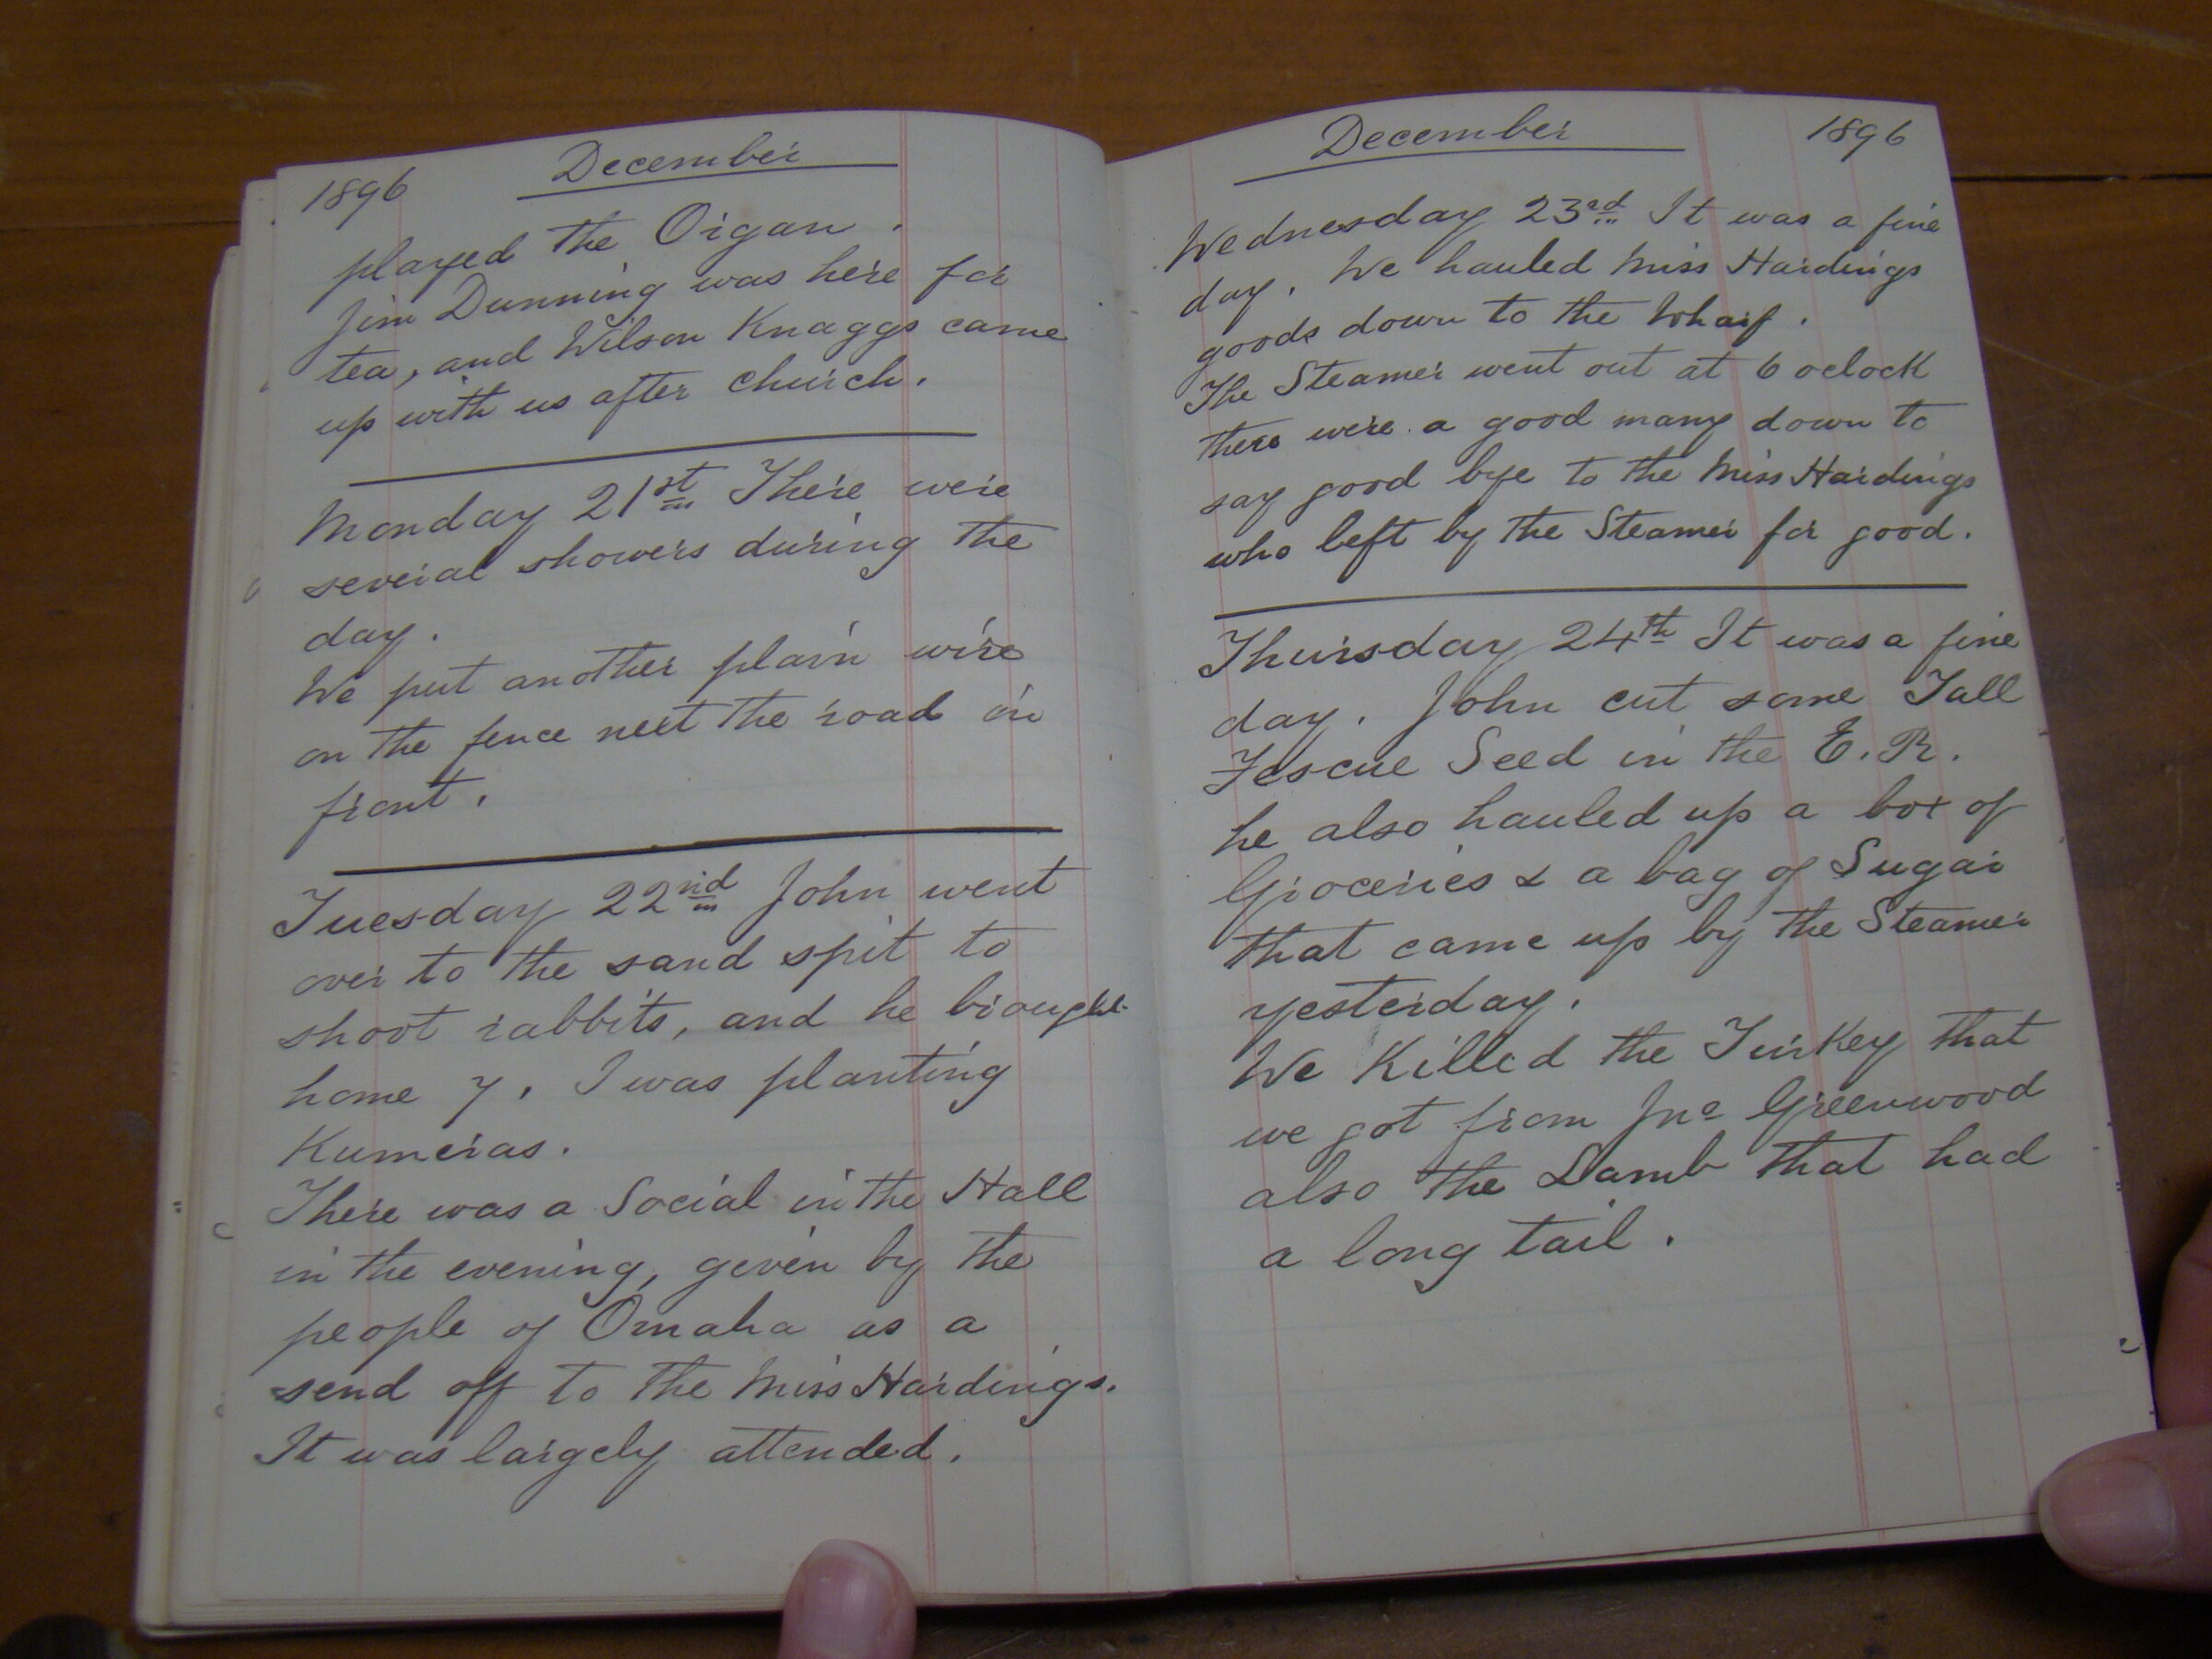 1896 December
played the Organ.
Jim Dunning was here for
tea, and Wilson Knaggs came
up with us after church.
Monday 21st There were
several showers during the
day.
We put another plain wire
on the fence next the road in
front.
Tuesday 22nd John went
over to the sand spit to
shoot rabbits, and he brought
home 7. I was planting
Kumeras.
There was a Social in the Hall
in the evening, given by the
people of Omaha as a
send off to the Miss Hardings.
It was largely attended.
December 1896
Wednesday 23rd It was a fine
day. We hauled Miss Hardings
goods down to the Wharf.
The Steamer went out at 6 oclock
there were a good many down to
say good bye to the Miss Hardings
who left by the Steamer for good.
Thursday 24th It was a fine
day. John cut some Tall
Fescue Seed in the E.R.
he also hauled up a box of
Groceries & a bag of Sugar
that came up by the Steamer
yesterday.
We Killed the Turkey that
we got from Jno Greenwood
also the Lamb that had
a long tail.